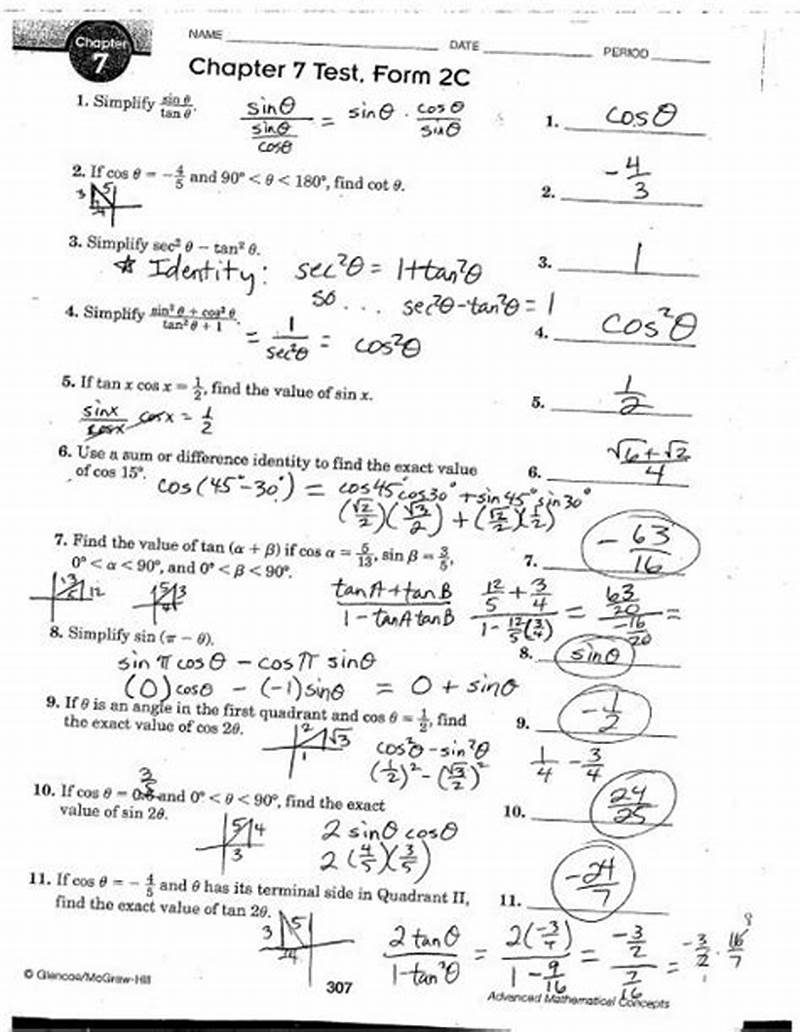 Chapter 7
NAME DATE PERIOD
Chapter 7 Test, Form 2C
1. Simplify sin θ / tan θ.
sinθ / (sinθ / cosθ) = sinθ · cosθ / sinθ
1. cosθ
2. If cos θ = −4/5 and 90° < θ < 180°, find cot θ.
3 5
4
2. −4/3
3. Simplify sec² θ − tan² θ.
☆ Identity: sec²θ = 1+tan²θ
so ... sec²θ−tan²θ = 1
3. 1
4. Simplify (sin² θ + cos² θ) / (tan² θ + 1).
= 1 / sec²θ = cos²θ
4. cos²θ
5. If tan x cos x = 1/2, find the value of sin x.
sinx / cosx cosx = 1/2
5. 1/2
6. Use a sum or difference identity to find the exact value
of cos 15°.
cos(45°−30°) = cos45°cos30° + sin45°sin30°
(√2/2)(√3/2) + (√2/2)(1/2)
6. (√6+√2) / 4
7. Find the value of tan (α + β) if cos α = 5/13, sin β = 3/5,
0° < α < 90°, and 0° < β < 90°.
13 12 5
5 3 4
(tanA + tanB) / (1 − tanA tanB)
(12/5 + 3/4) / (1 − 12/5(3/4)) = (63/20) / (−16/20) =
7. −63/16
8. Simplify sin (π − θ).
sin π cosθ − cos π sinθ
(0)cosθ − (−1)sinθ = 0 + sinθ
8. sinθ
9. If θ is an angle in the first quadrant and cos θ = 1/2, find
the exact value of cos 2θ.
2 √3
1
cos²θ − sin²θ
(1/2)² − (√3/2)²
1/4 − 3/4
9. −1/2
10. If cos θ = 3/5 and 0° < θ < 90°, find the exact
value of sin 2θ.
5 4
3
2 sinθ cosθ
2(4/5)(3/5)
10. 24/25
11. If cos θ = −4/5 and θ has its terminal side in Quadrant II,
find the exact value of tan 2θ.
3 5
−4
2 tanθ / (1−tan²θ) = 2(−3/4) / (1 − 9/16) = (−3/2) / (7/16) = −3/2 · 16/7
8
1
11. −24/7
© Glencoe/McGraw-Hill
307
Advanced Mathematical Concepts